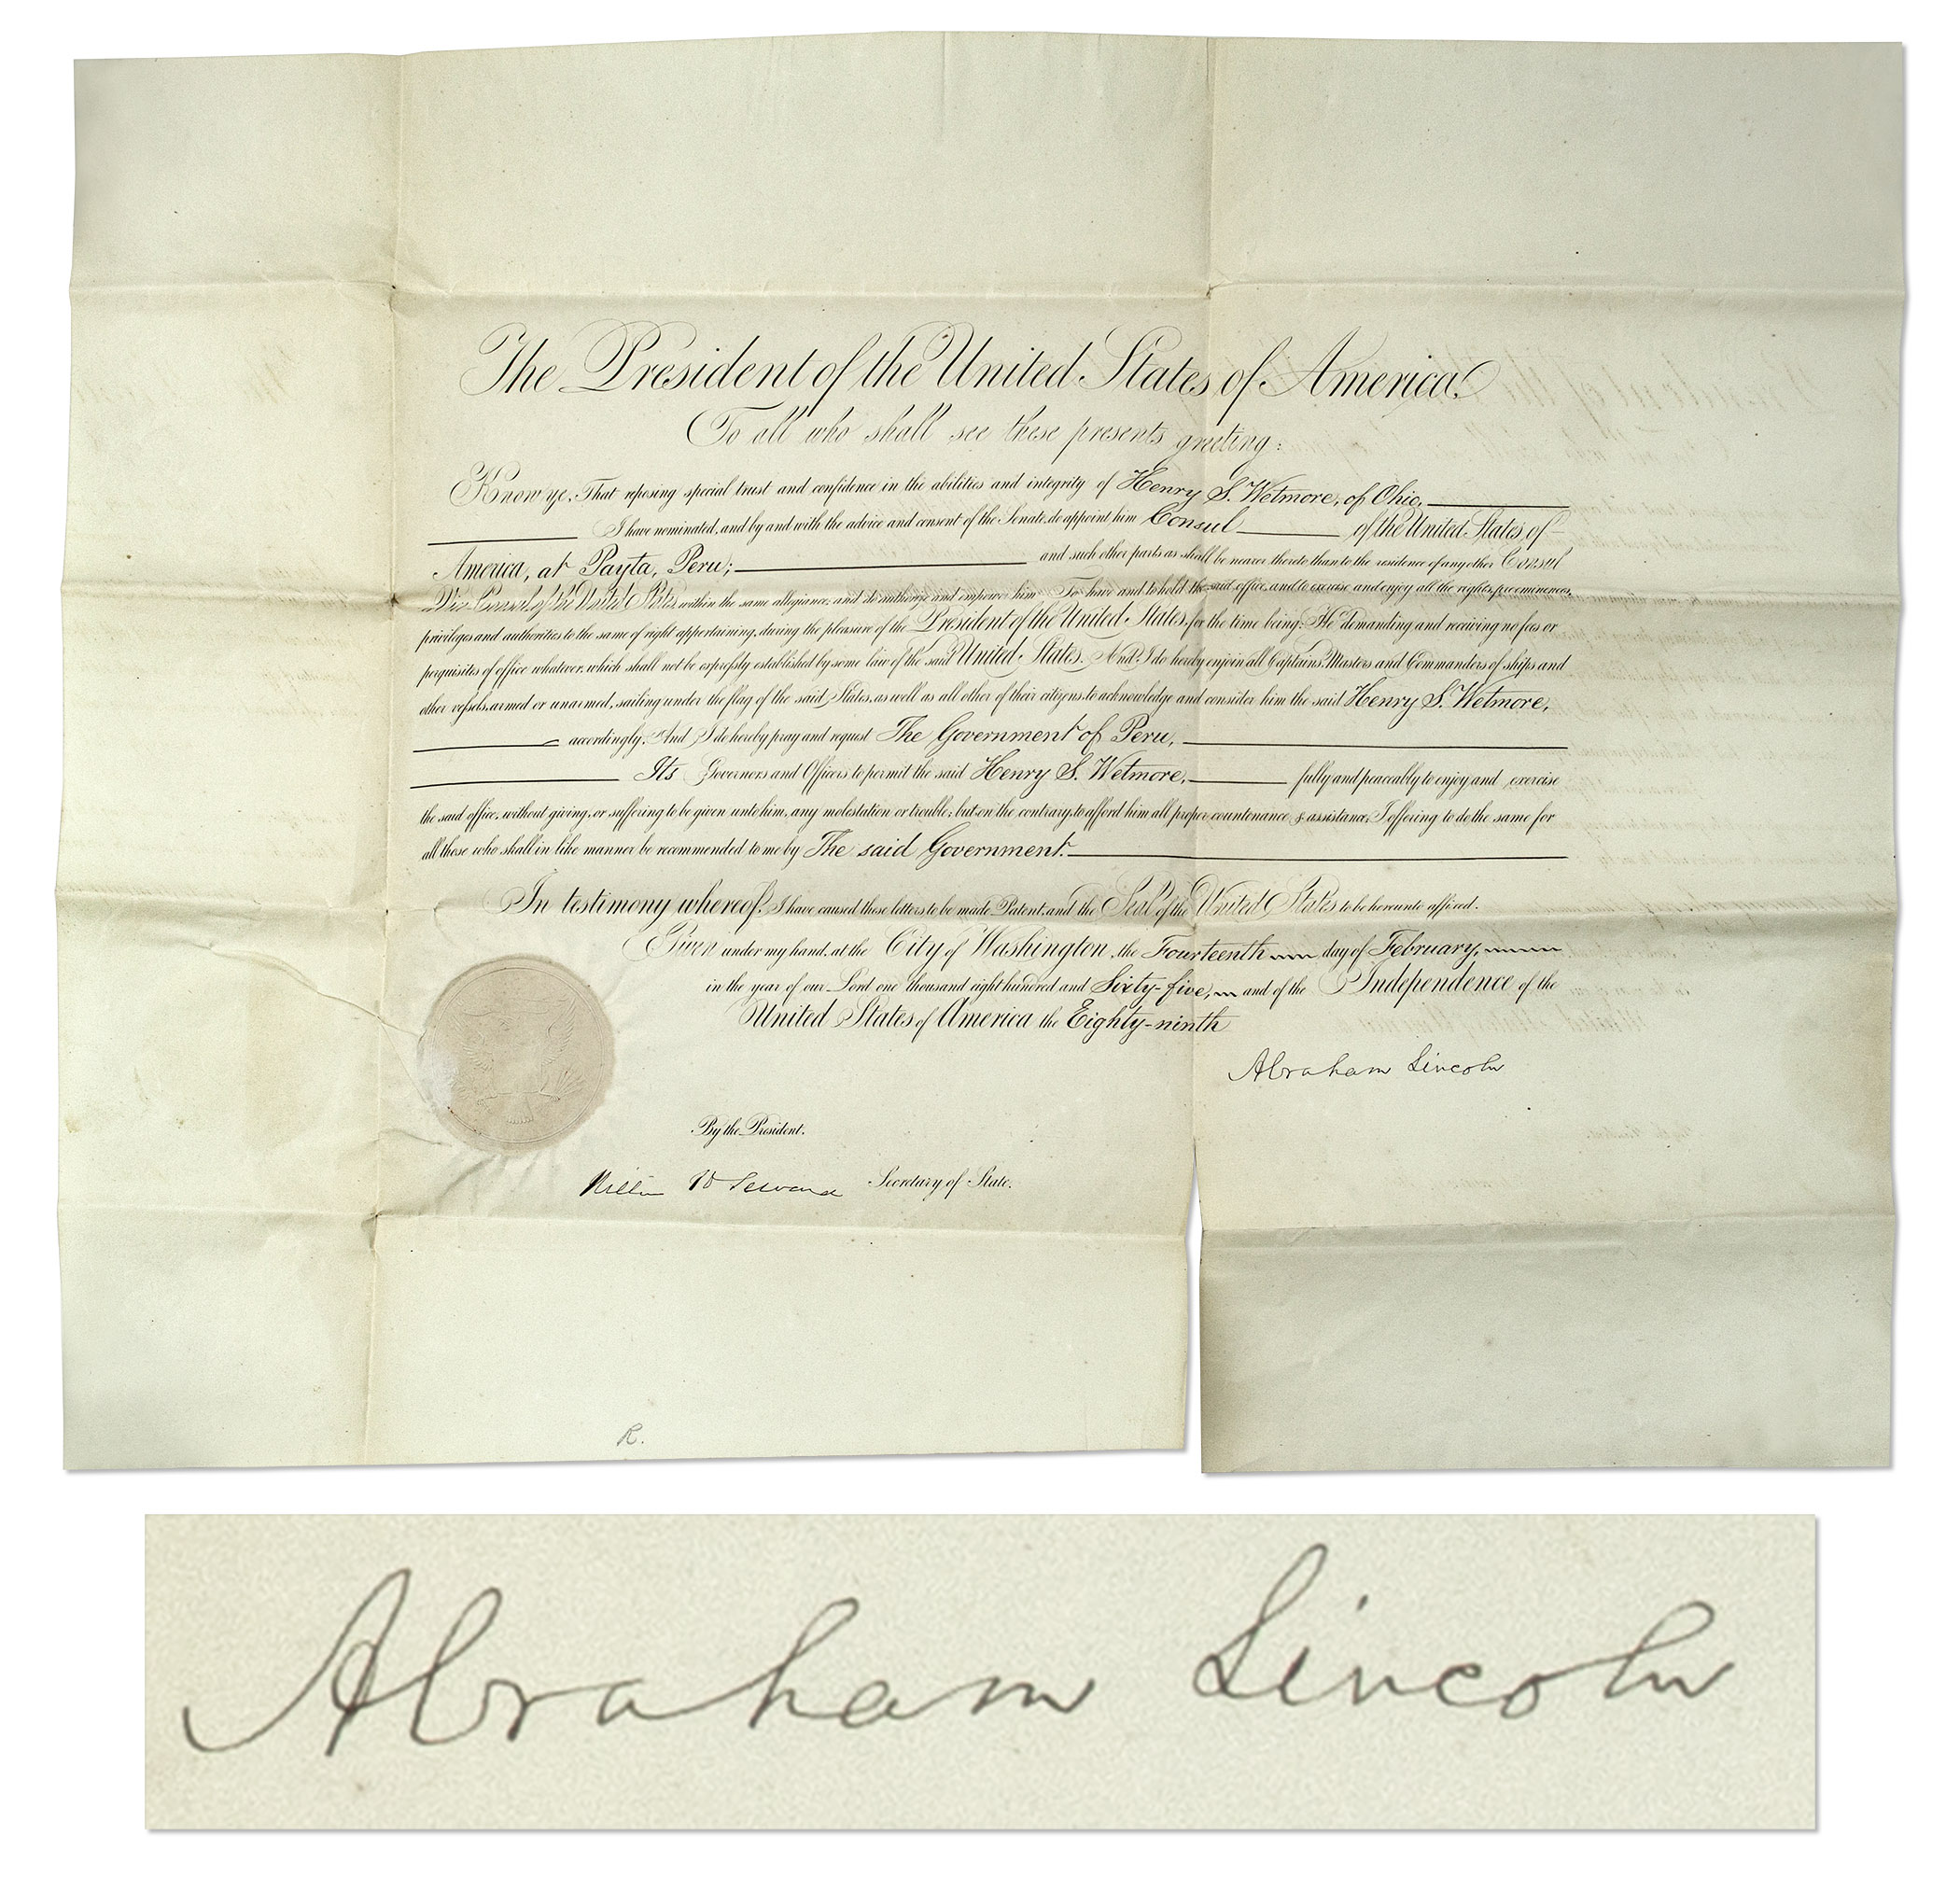 The President of the United States of America,
To all who shall see these presents greeting:
Know ye, That reposing special trust and confidence in the abilities and integrity of Henry S. Wetmore, of Ohio,
I have nominated, and by and with the advice and consent of the Senate, do appoint him Consul of the United States of
America, at Payta, Peru; and such other parts as shall be nearer thereto than to the residence of any other Consul
Vice Consul of the United States within the same allegiance; and do authorize and empower him To have and to hold the said office, and to exercise and enjoy all the rights, preeminences,
privileges and authorities to the same of right appertaining, during the pleasure of the President of the United States, for the time being; He demanding and receiving no fees or
perquisites of office whatever, which shall not be expressly established by some law of the said United States. And I do hereby enjoin all Captains, Masters and Commanders of ships and
other vessels, armed or unarmed, sailing under the flag of the said States, as well as all other of their citizens, to acknowledge and consider him the said Henry S. Wetmore,
accordingly. And I do hereby pray and request The Government of Peru,
Its Governors and Officers to permit the said Henry S. Wetmore, fully and peaceably to enjoy and exercise
the said office, without giving, or suffering to be given unto him, any molestation or trouble; but on the contrary, to afford him all proper countenance & assistance; I offering to do the same for
all those who shall in like manner be recommended to me by The said Government.
In testimony whereof, I have caused these letters to be made Patent, and the Seal of the United States to be hereunto affixed.
Given under my hand, at the City of Washington, the Fourteenth day of February,
in the year of our Lord one thousand eight hundred and Sixty-five, and of the Independence of the
United States of America the Eighty-ninth
Abraham Lincoln
By the President.
William H Seward Secretary of State.
R.
Abraham Lincoln